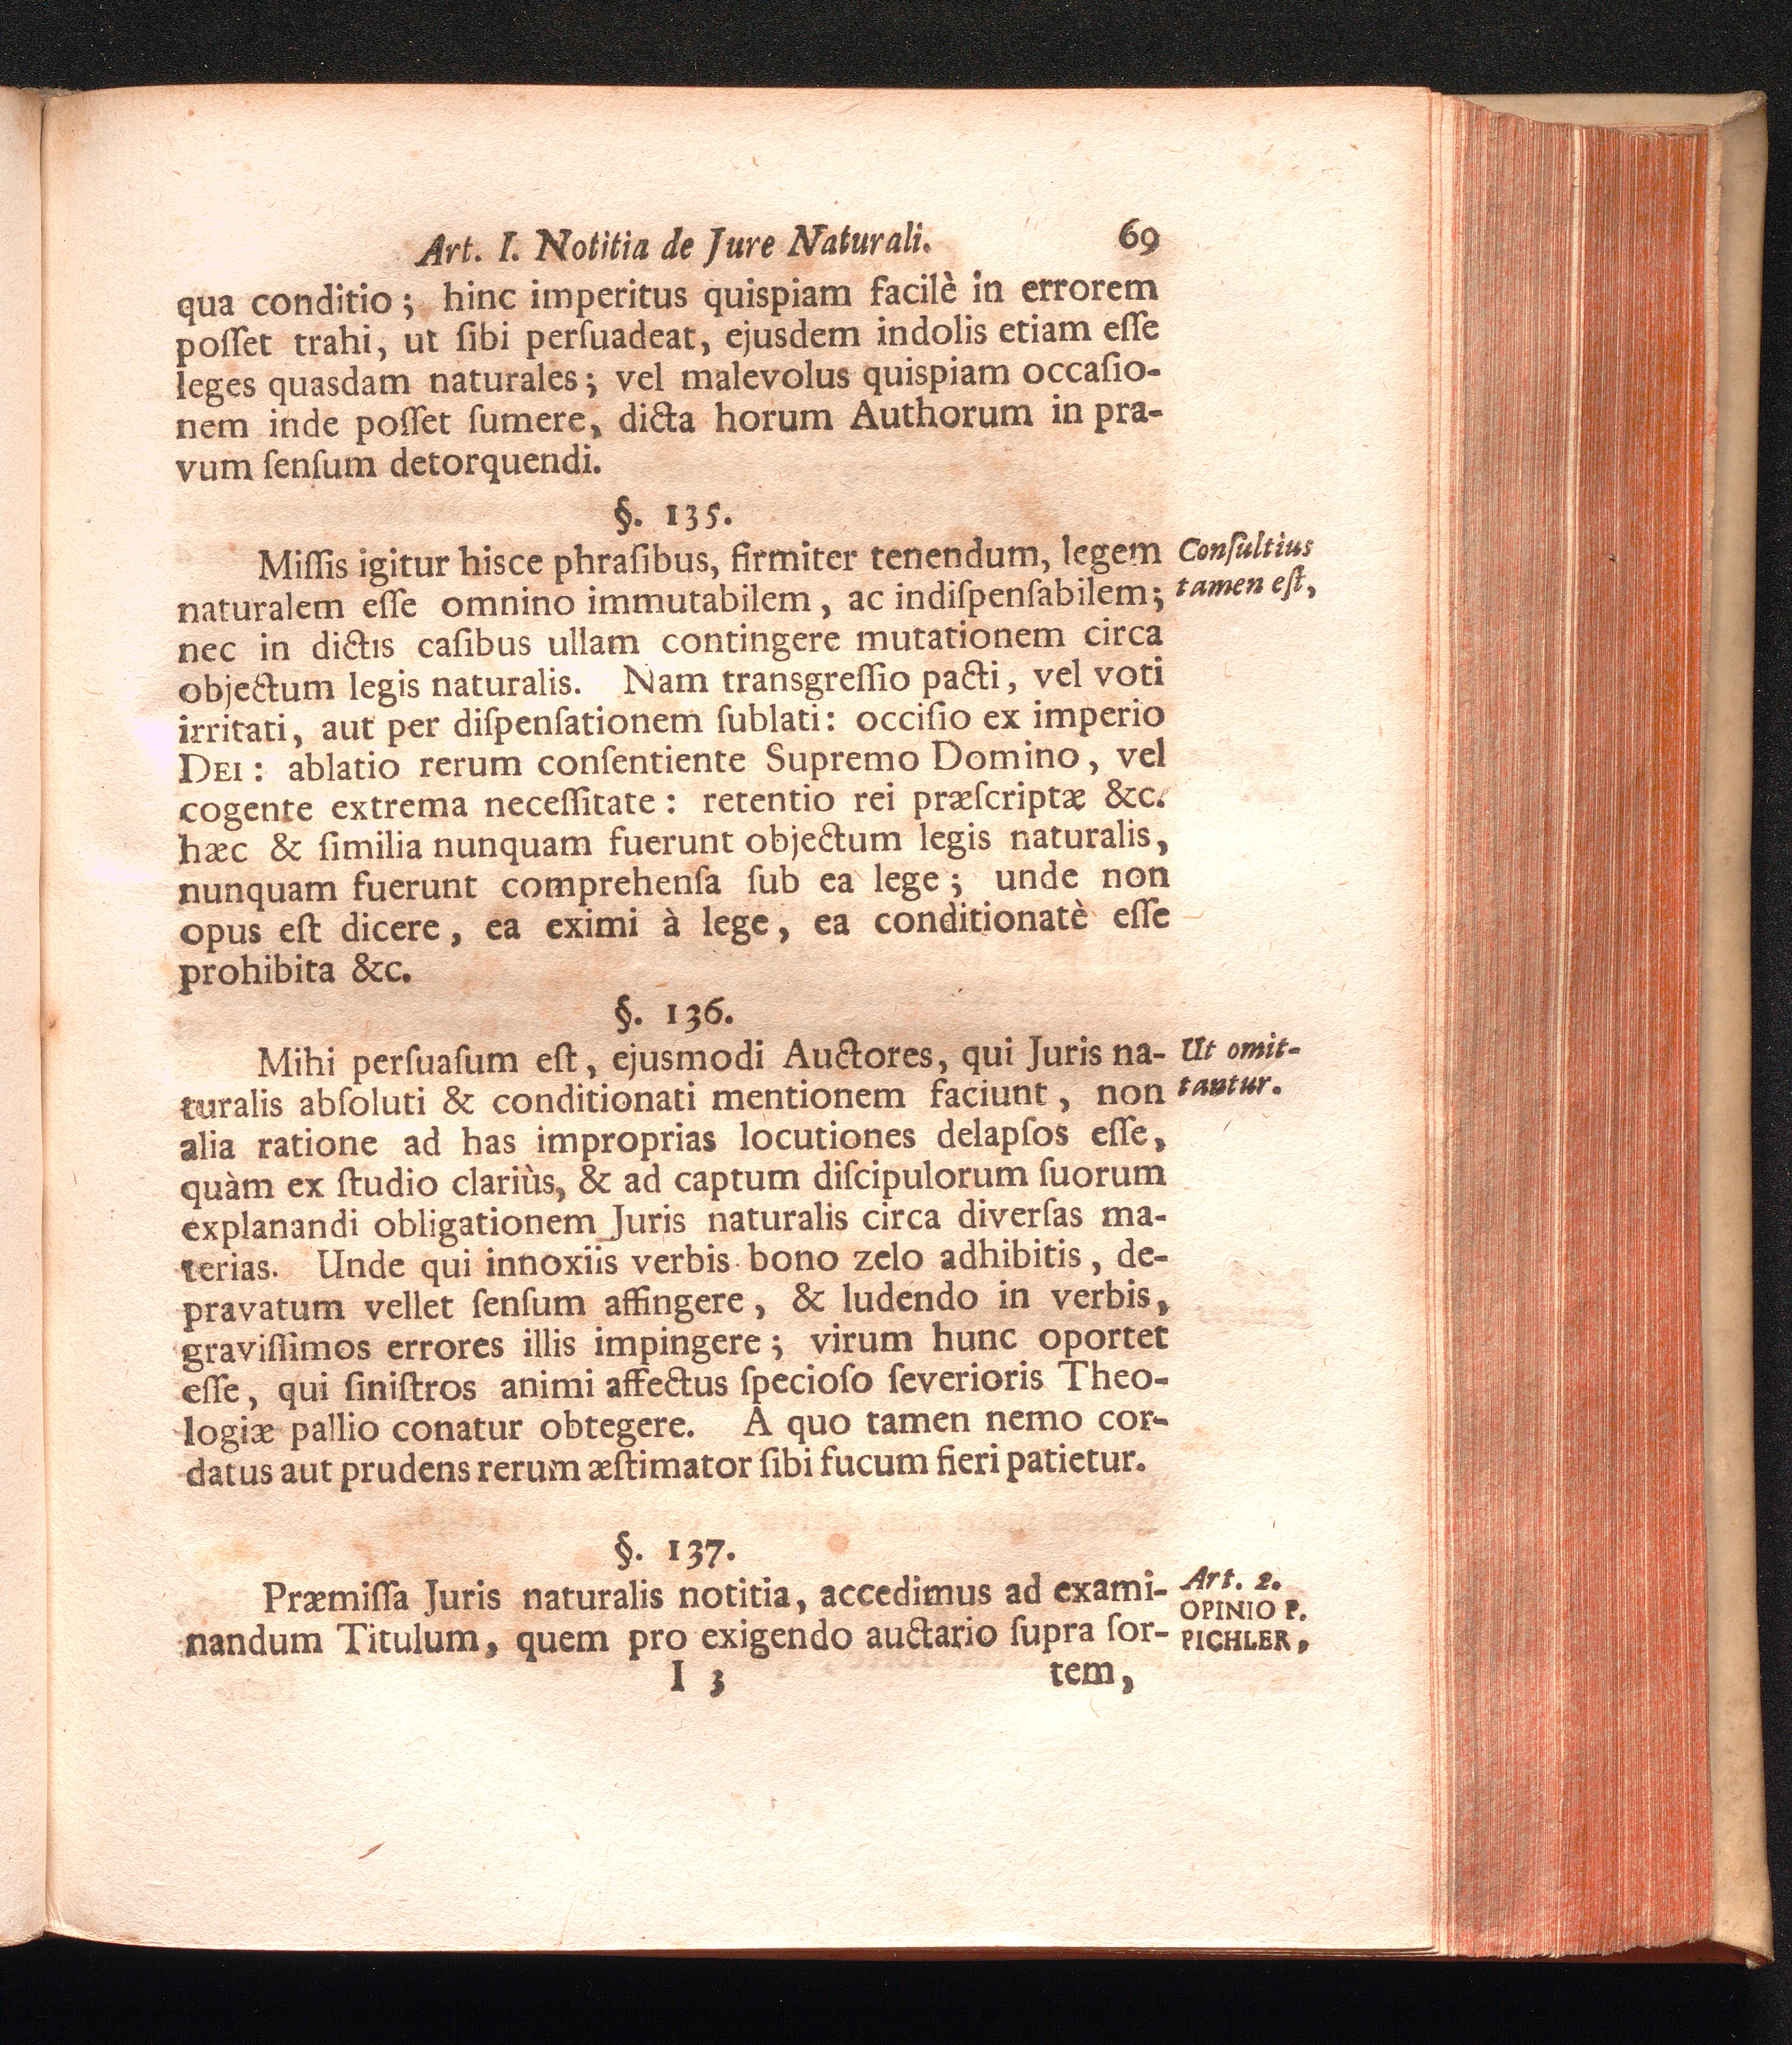 Art. I. Notitia de Jure Naturali. 69
qua conditio; hinc imperitus quispiam facilè in errorem
poſſet trahi, ut ſibi perſuadeat, ejusdem indolis etiam eſſe
leges quasdam naturales; vel malevolus quispiam occaſio-
nem inde poſſet ſumere, dicta horum Authorum in pra-
vum ſenſum detorquendi.
§. 135.
Miſſis igitur hisce phraſibus, firmiter tenendum, legem
Conſultiùs
naturalem eſſe omnino immutabilem, ac indiſpenſabilem;
tamen eſt,
nec in dictis caſibus ullam contingere mutationem circa
objectum legis naturalis. Nam transgreſſio pacti, vel voti
irritati, aut per diſpenſationem ſublati: occiſio ex imperio
DEI: ablatio rerum conſentiente Supremo Domino, vel
cogente extrema neceſſitate: retentio rei præſcriptæ &c.
hæc & ſimilia nunquam fuerunt objectum legis naturalis,
nunquam fuerunt comprehenſa ſub ea lege; unde non
opus eſt dicere, ea eximi à lege, ea conditionatè eſſe
prohibita &c.
§. 136.
Mihi perſuaſum eſt, ejusmodi Auctores, qui Juris na-
Ut omit-
turalis abſoluti & conditionati mentionem faciunt, non
tantur.
alia ratione ad has improprias locutiones delapſos eſſe,
quàm ex ſtudio clariùs, & ad captum diſcipulorum ſuorum
explanandi obligationem Juris naturalis circa diverſas ma-
terias. Unde qui innoxiis verbis bono zelo adhibitis, de-
pravatum vellet ſenſum affingere, & ludendo in verbis,
graviſſimos errores illis impingere; virum hunc oportet
eſſe, qui ſiniſtros animi affectus ſpecioſo ſeverioris Theo-
logiæ pallio conatur obtegere. A quo tamen nemo cor-
datus aut prudens rerum æſtimator ſibi fucum fieri patietur.
§. 137.
Præmiſſa Juris naturalis notitia, accedimus ad exami-
Art. 2.
OPINIO P.
nandum Titulum, quem pro exigendo auctario ſupra ſor-
PICHLER,
I 3 tem,